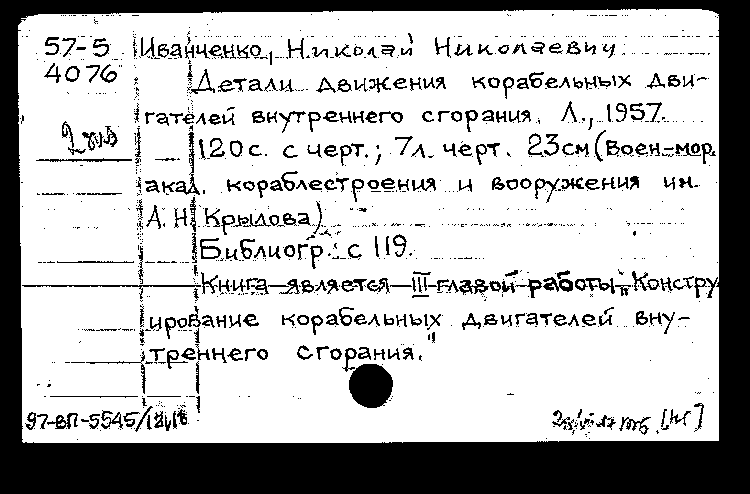 57-5 Иванченко, Николай Николаевич.
4076 Детали движения корабельных дви-
гателей внутреннего сгорания. Л., 1957.
120с. с черт.; 7л. черт. 23см (Воен-мор.
акад. кораблестроения и вооружения им.
А. Н. Крылова)
Библиогр.: с 119.
Книга является III главой работы „Констру
ирование корабельных двигателей вну-
треннего сгорания."
97-ВП-5545/